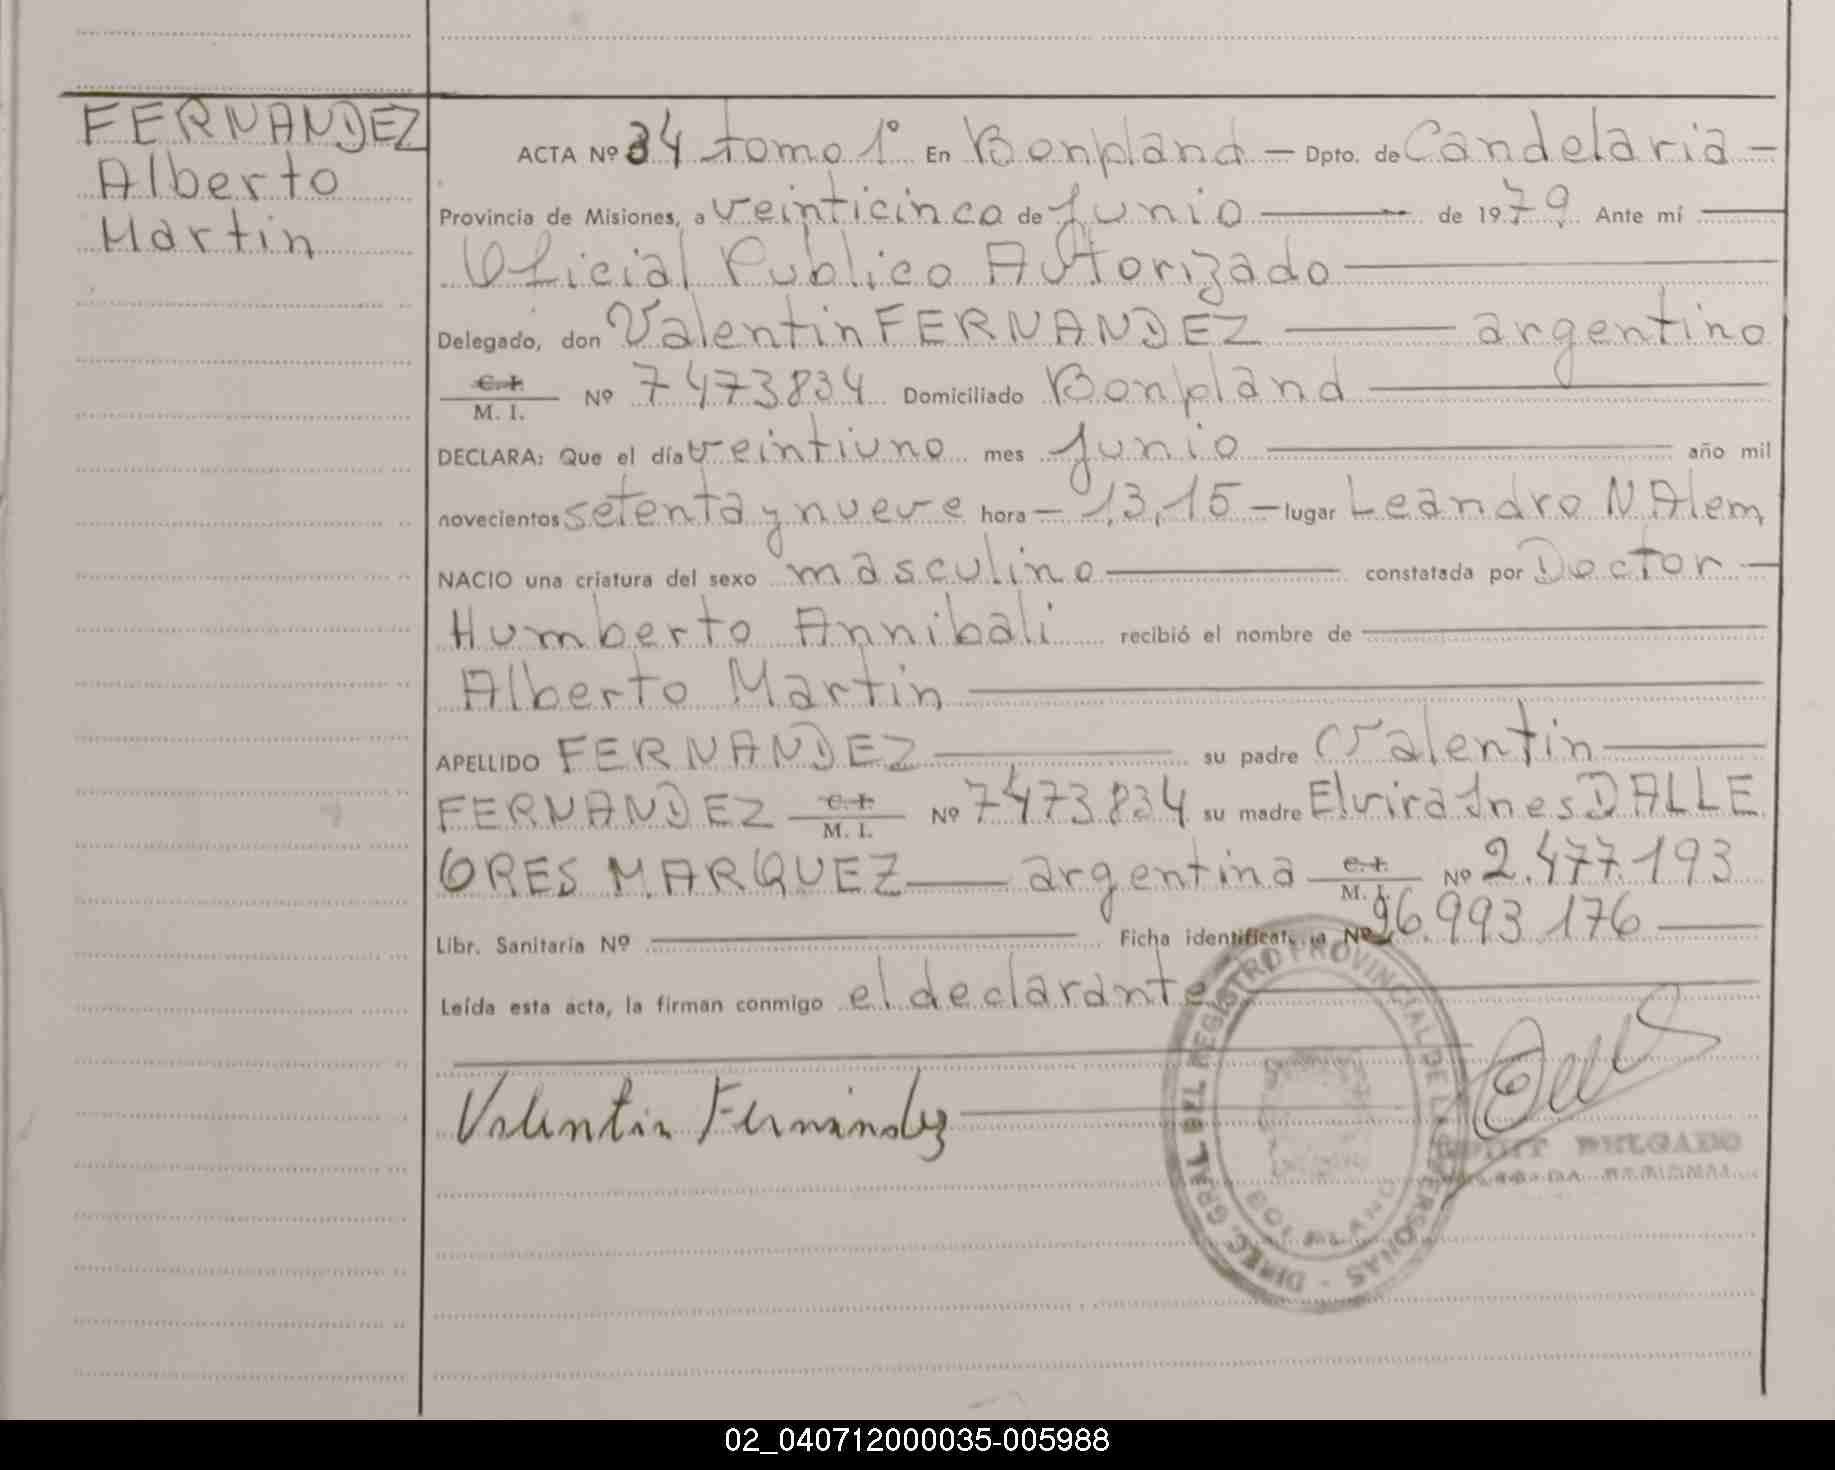 FERNANDEZ
Alberto
Martin
ACTA Nº 34 tomo 1° En Bonpland — Dpto. de Candelaria —
Provincia de Misiones, a veinticinco de Junio de 1979. Ante mí
Oficial Publico Autorizado
Delegado, don Valentin FERNANDEZ argentino
C. I. / M. I. Nº 7473834 Domiciliado Bonpland
DECLARA: Que el día veintiuno mes Junio año mil
novecientos setenta y nueve hora — 13,15 — lugar Leandro N Alem
NACIO una criatura del sexo masculino constatada por Doctor —
Humberto Annibali recibió el nombre de
Alberto Martin
APELLIDO FERNANDEZ su padre Valentin
FERNANDEZ C. I. / M. I. Nº 7473834 su madre Elvira Ines DALLE
ORES MARQUEZ argentina C. I. / M. I. Nº 2.477.193
Libr. Sanitaria Nº Ficha identificatoria Nº 26.993.176
Leída esta acta, la firman conmigo el declarante
Valentin Fernández
DIREC. GRAL DEL REGISTRO PROVINCIAL DE LAS PERSONAS
BONPLAND
DELGADO
02_040712000035-005988